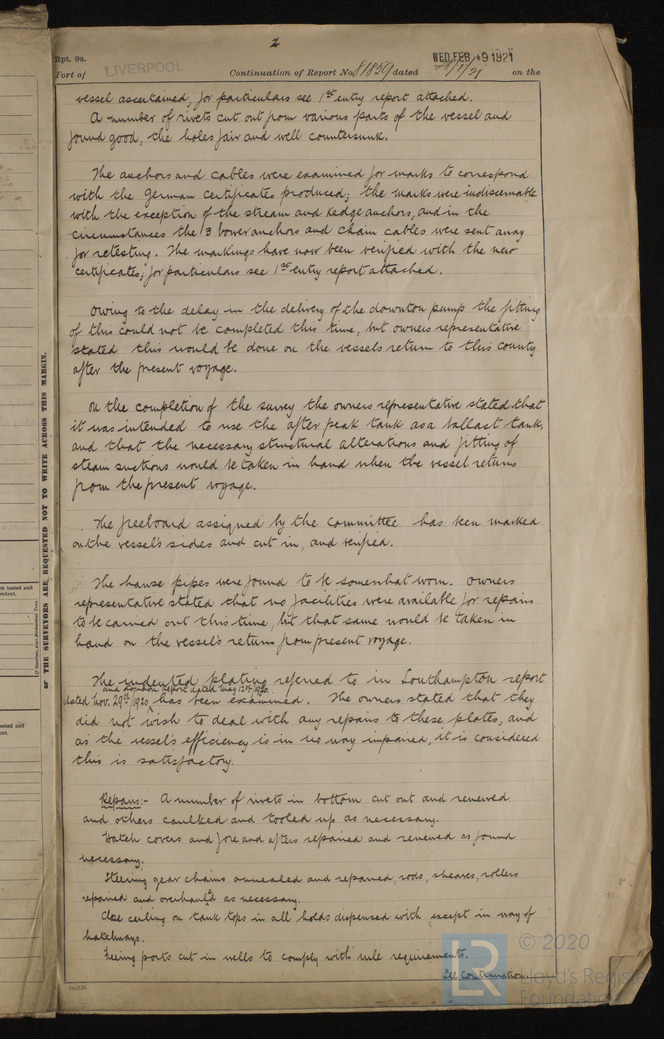 2
Rpt. 9a.
WED. FEB. 9 1921
Port of LIVERPOOL Continuation of Report No. 81859 dated on the
vessel ascertained, for particulars see 1st entry report attached.
A number of rivets cut out from various parts of the vessel and
found good, the holes fair and well countersunk.
The anchors and cables were examined for marks to correspond
with the German certificates produced; the marks were indiscernable
with the exception of the stream and kedge anchors, and in the
circumstances the 3 bower anchors and chain cables were sent away
for retesting. The markings have now been verified with the new
certificates; for particulars see 1st entry report attached.
Owing to the delay in the delivery of the downton pump the fitting
of this could not be completed this time, but owners representative
stated this would be done on the vessels return to this country
after the present voyage.
On the completion of the survey the owners representative stated that
it was intended to use the after peak tank as a ballast tank,
and that the necessary structural alterations and fitting of
steam suctions would be taken in hand when the vessel returns
from the present voyage.
The freeboard assigned by the Committee has been marked
on the vessel's sides and cut in, and verified.
The hawse pipes were found to be somewhat worn. Owners
representative stated that no facilities were available for repairs
to be carried out this time, but that same would be taken in
hand on the vessel's return from present voyage.
The indented plating referred to in Southampton report
and London report dated May 12th 1920
dated Nov. 29th 1920, has been examined. The owners stated that they
did not wish to deal with any repairs to these plates, and
as the vessel's efficiency is in no way impaired, it is considered
this is satisfactory.
Repairs:- A number of rivets in bottom cut out and renewed
and others caulked and tooled up as necessary.
Hatch covers and fore and afters repaired and renewed as found
necessary.
Steering gear chains annealed and repaired, rods, sheaves, rollers
repaired and overhauled as necessary.
Close ceiling on tank tops in all holds dispensed with except in way of
hatchways.
Freeing ports cut in wells to comply with rule requirements.
See Continuation.
THE SURVEYORS ARE REQUESTED NOT TO WRITE ACROSS THIS MARGIN.
LR
© 2020
Lloyd's Register
Foundation